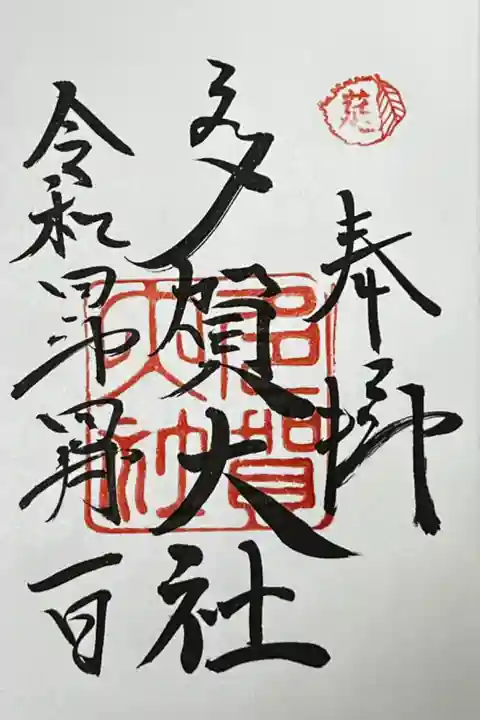 莚
奉拝
多賀大社
多賀大社
令和四年四月一日